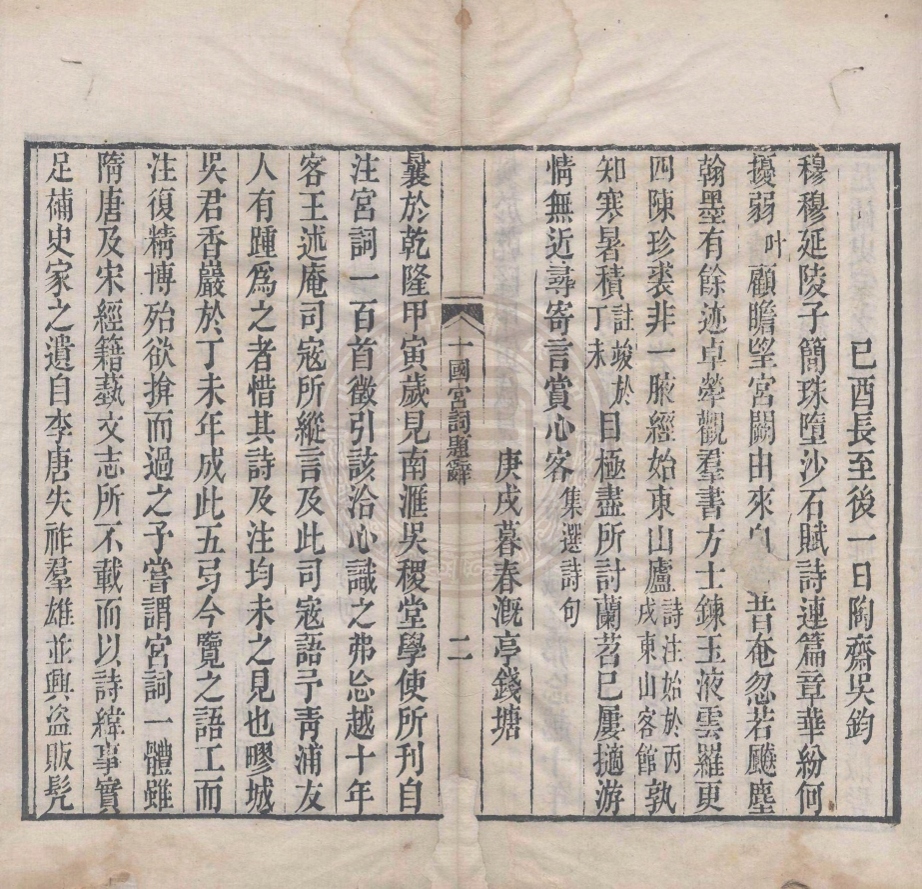 己酉長至後一日陶齋吳鈞
穆穆延陵子簡珠墮沙石賦詩連篇章華紛何
擾弱叶顧瞻望宮闕由來自昔奄忽若飈塵
翰墨有餘迹卓犖觀羣書方士鍊玉液雲羅更
四陳珍裘非一腋經始東山廬詩注始於丙戌東山客館孰
知寒暑積註竣於丁未目極盡所討蘭苕已屢擿游
情無近尋寄言賞心客集選詩句
庚戌暮春溉亭錢塘
十國宮詞題辭
二
曩於乾隆甲寅歲見南滙吳稷堂學使所刊自
注宮詞一百首徵引該洽心識之弗忘越十年
客王述庵司寇所縱言及此司寇語予青浦友
人有踵爲之者惜其詩及注均未之見也疁城
吳君香巖於丁未年成此五弓今覽之語工而
注復精博殆欲揜而過之予嘗謂宮詞一體雖
隋唐及宋經籍藝文志所不載而以詩緯事實
足補史家之遺自李唐失祚羣雄並興盜販髠